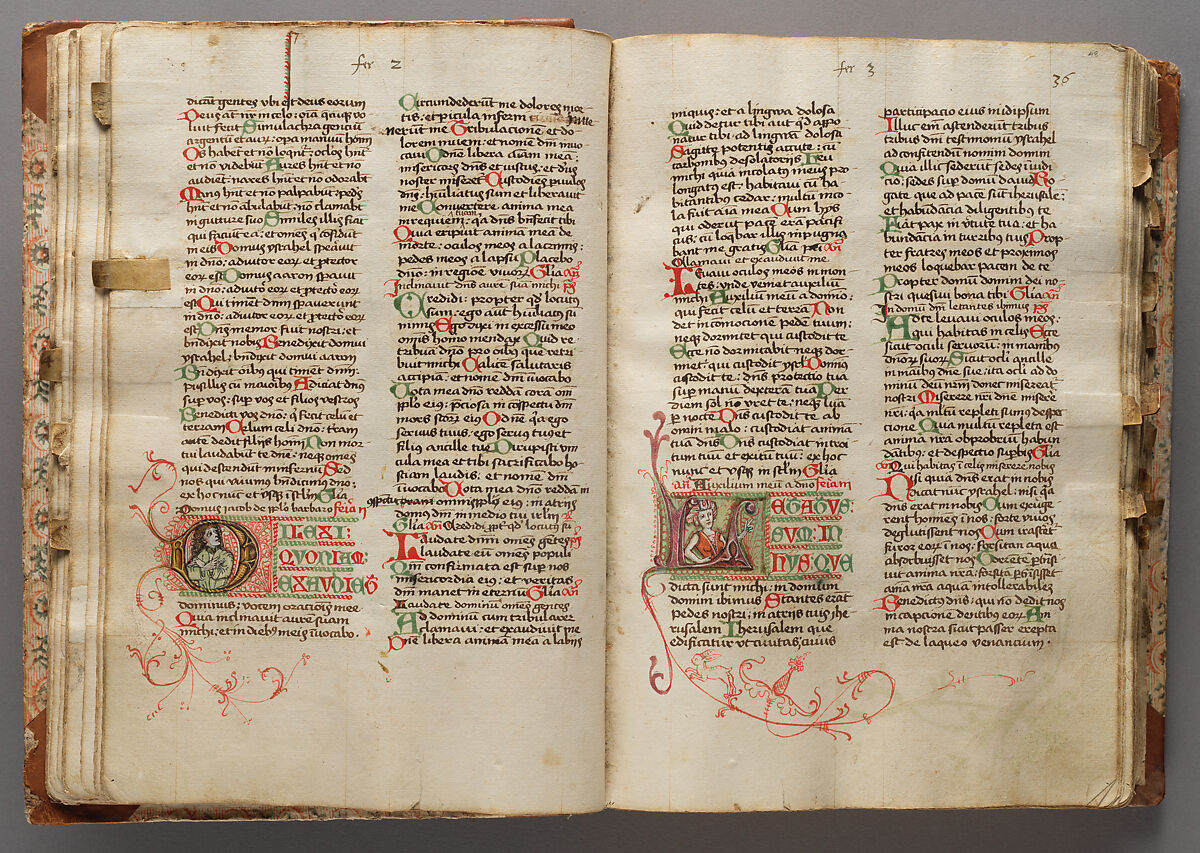 fer 2
dicant gentes ubi est deus eorum
Deus aut nr in celo: oia quecuq vo
luit fecit Simulachra gentiu
argentu et auru: opa manuu homi
Os habet et no loquet: oclos hnt
et no videbut Aures hnt et no
audiet: nares hnt et no odorabt
Manus hnt et no palpabut: pedes
hnt et no abulabut: no clamabt
in gutture suo Similes illis fiat
qui faciut ea: et omes q cofidut
in eis Domus ysrahel speavit
in dno: adiutor eor et ptector
eor est Domus aaron spavit
in dno: adiuto eor et ptecto eor
est Qui timent dnm spaverunt
in dno: adiutor eor et ptector eor
est Dns memor fuit nostri: et
bndixit nobis Benedixit domui
ysrahel: bndixit domui aaron
Bndixit oibus qui timent dnm:
pusillis cu maiorib Adiciat dns
sup vos: sup vos et filios vestros
Benedicti vos dno: q fecit celu et
terram Celum celi dno: tram
aute dedit filijs homi Non mor
tui laudabut te dne: neq omes
qui descendut in infernu Sed
nos qui vivimus bndicimus dno:
ex hoc nuc et usq in sclm Glia
Domus iacob de pplo barbaro feria ii
DILEXI:
QUONIAM:
EXAUDIET
dominus: vocem oracionis mee
Quia inclinavit aure suam
michi: et in dieb meis invocabo.
Circumdederut me dolores mor
tis: et picula inferni
inve
nerut me Tribulacione et do
lorem inveni: et nome dni invo
cavi O dne libera aiam mea:
misericors dns et iustus: et deus
noster miseret Custodies pvulos
dns: humiliatus sum et liberavit
me Convertere anima mea
in requiem tuam: qa dns bnfecit tibi
Quia eripuit animam mea de
morte: oculos meos a lacrimis:
pedes meos a lapsu Placebo
dno: in regione vivor Glia an
Inclinavit dns aure sua michi ps
Credidi: propter qd locutus
sum: ego aut humiliatus su
nimis Ego dixi in excessu meo
omis homo mendax Quid re
tribua dno: pro oibus que retri
buit michi Calice salutaris
accipia: et nome dni invocabo
Vota mea dno redda cora oni
pplo ei: pciosa in cospectu dni
mors scor ei O dne qa ego
servus tuus: ego servus tuus et
filius ancille tue Dirupisti vin
cula mea et tibi sacrificabo ho
stiam laudis: et nomen dni
invocabo Vota mea dno reddam in
cospectu omnis pplo ei: in atriis
domus dni in medio tui irlm
Glia an Credidi ppt qd locut su
Laudate dnm omes getes ps
laudate eu omes populi
Qm confirmata est sup nos
misericordia ei: et veritas
dni manet in eternu Glia an
Laudate dominu omes gentes
Ad dominu cum tribularer
clamavi: et exaudivit me
Dne libera anima mea a labiis
fer 3
48
36
iniquis: et a lingwa dolosa
Quid detur tibi aut qd appo
natur tibi: ad lingwa dolosa
Sagitte potentis acute: cu
carbonibus desolatoriis Heu
michi quia incolatus meus pro
longatus est: habitavi cu ha
bitantibus cedar: multu inco
la fuit aia mea Cum hiis
qui oderut pace era pacifi
cus: cu loqbar illis inpugna
bant me gratis Glia pri an
Clamavi et exaudivit me
Levavi oculos meos in mon
tes: unde veniet auxiliu
michi Auxiliu meu a domino:
qui fecit celu et terra Non
det in comocione pedem tuum:
neq dormitet qui custodit te
Ecce no dormitabit neq dor
miet: qui custodit ysrl Dominus
custodit te: dns protectio tua
sup manu dextera tua Per
diem sol no uret te: neq luna
p nocte Dns custodit te ab
omni malo: custodiat anima
tua dns Dns custodiat introi
tum tuu et exitu tuu: ex hoc
nunc et usq in sclm Glia
an Auxilium meu a dno feria iii
LETATUS:
SUM: IN
HIIS: QUE
dicta sunt michi: in domum
domini ibimus Stantes erat
pedes nostri: in atriis tuis ihe
rusalem Iherusalem que
edificatur ut civitas: cuius
participacio eius in idipsum
Illuc eni ascenderut tribus
tribus dni testimoniu ysrahel
ad confitendu nomini domini
Quia illic sederut sedes i iudi
cio: sedes sup domu david Ro
gate que ad pace sut iherusale:
et habudacia diligentibus te
Fiat pax in virtute tua: et ha
bundacia in turribus tuis Prop
ter fratres meos et proximos
meos loquebar pacem de te
Propter domum domini dei no
stri quesivi bona tibi Glia an
In domu dni letantes ibimus ps
Ad te levavi oculos meos:
qui habitas in celis Ecce
sicut oculi servoru: in manibus
dnor suor Sicut oculi ancille
in maibus dne sue: ita ocli ad do
minu deu nrm donec misereat
nostri Miserere nri dne misere
nri: qa multu repleti sum despec
cione Quia multu repleta est
anima nra obprobriu habun
datibus: et despectio supbis Glia
an Qui habitas i celis miserere nobis
Nisi quia dns erat in nobis
dicat nuc ysrahel: nisi qa
dns erat in nobis Cum exurge
rent homies i nos: forte vivos
deglutissent nos Cum irascet
furor eor i nos: forsitan aqua
absorbuisset nos Torrete ptsi
vit anima nra: forsita ptsisset
aia nra aqua intollerabile
Benedictus dns: qui no dedit nos
in capcione dentibus eor Ani
ma nostra sicut passer erepta
est de laqueo venancium.